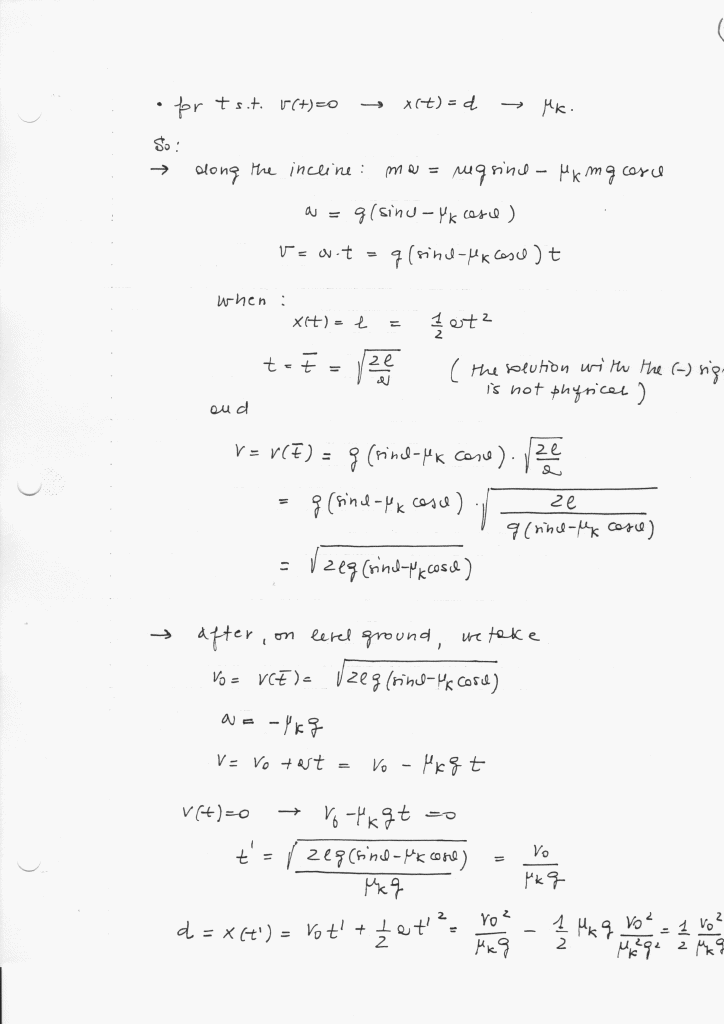 • for t s.t. v(t)=0 → x(t) = d → μk.
So:
→ along the incline: ma = mg sinα − μk mg cosα
a = g(sinα − μk cosα)
v = a·t = g(sinα−μk cosα)t
when:
x(t) = l = 1/2 at²
t = t̄ = √(2l/a) (the solution with the (-) sig
is not physical)
and
v = v(t̄) = g(sinα−μk cosα)·√(2l/a)
= g(sinα−μk cosα)·√(2l/(g(sinα−μk cosα)))
= √(2lg(sinα−μk cosα))
→ after, on level ground, we take
v0 = v(t̄) = √(2lg(sinα−μk cosα))
a = −μk g
v = v0 + at = v0 − μk g t
v(t)=0 → v0 −μk gt =0
t' = √(2lg(sinα−μk cosα))/(μk g) = v0/(μk g)
d = x(t') = v0 t' + 1/2 at'² = v0²/(μk g) − 1/2 μk g v0²/(μk² g²) = 1/2 v0²/(μk g